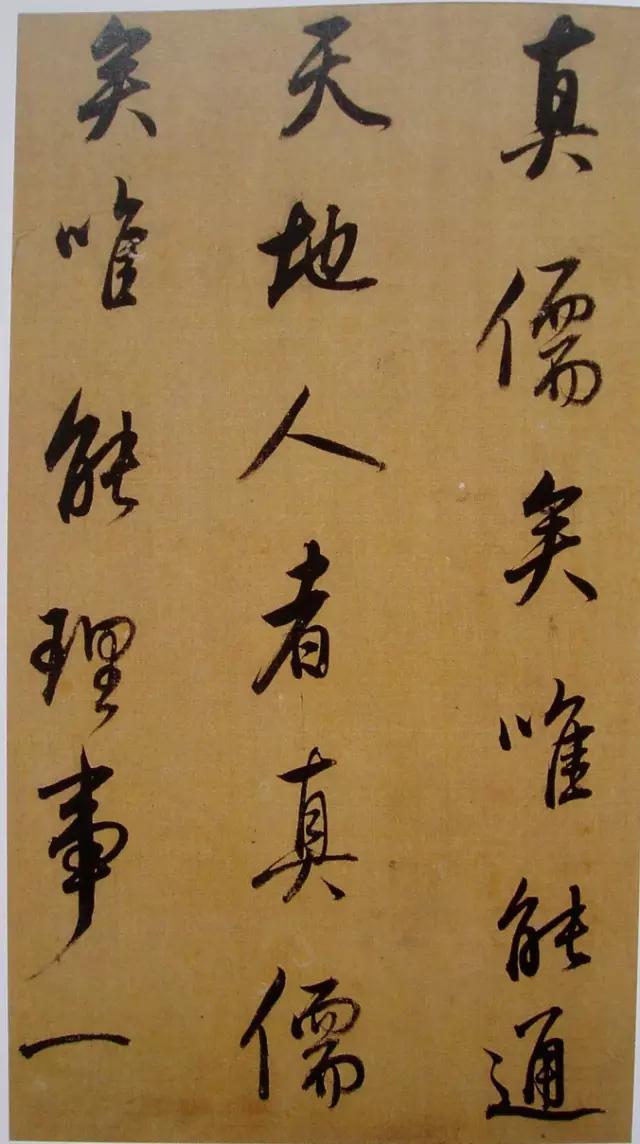 真儒矣唯能通
天地人者真儒
矣唯能理事一